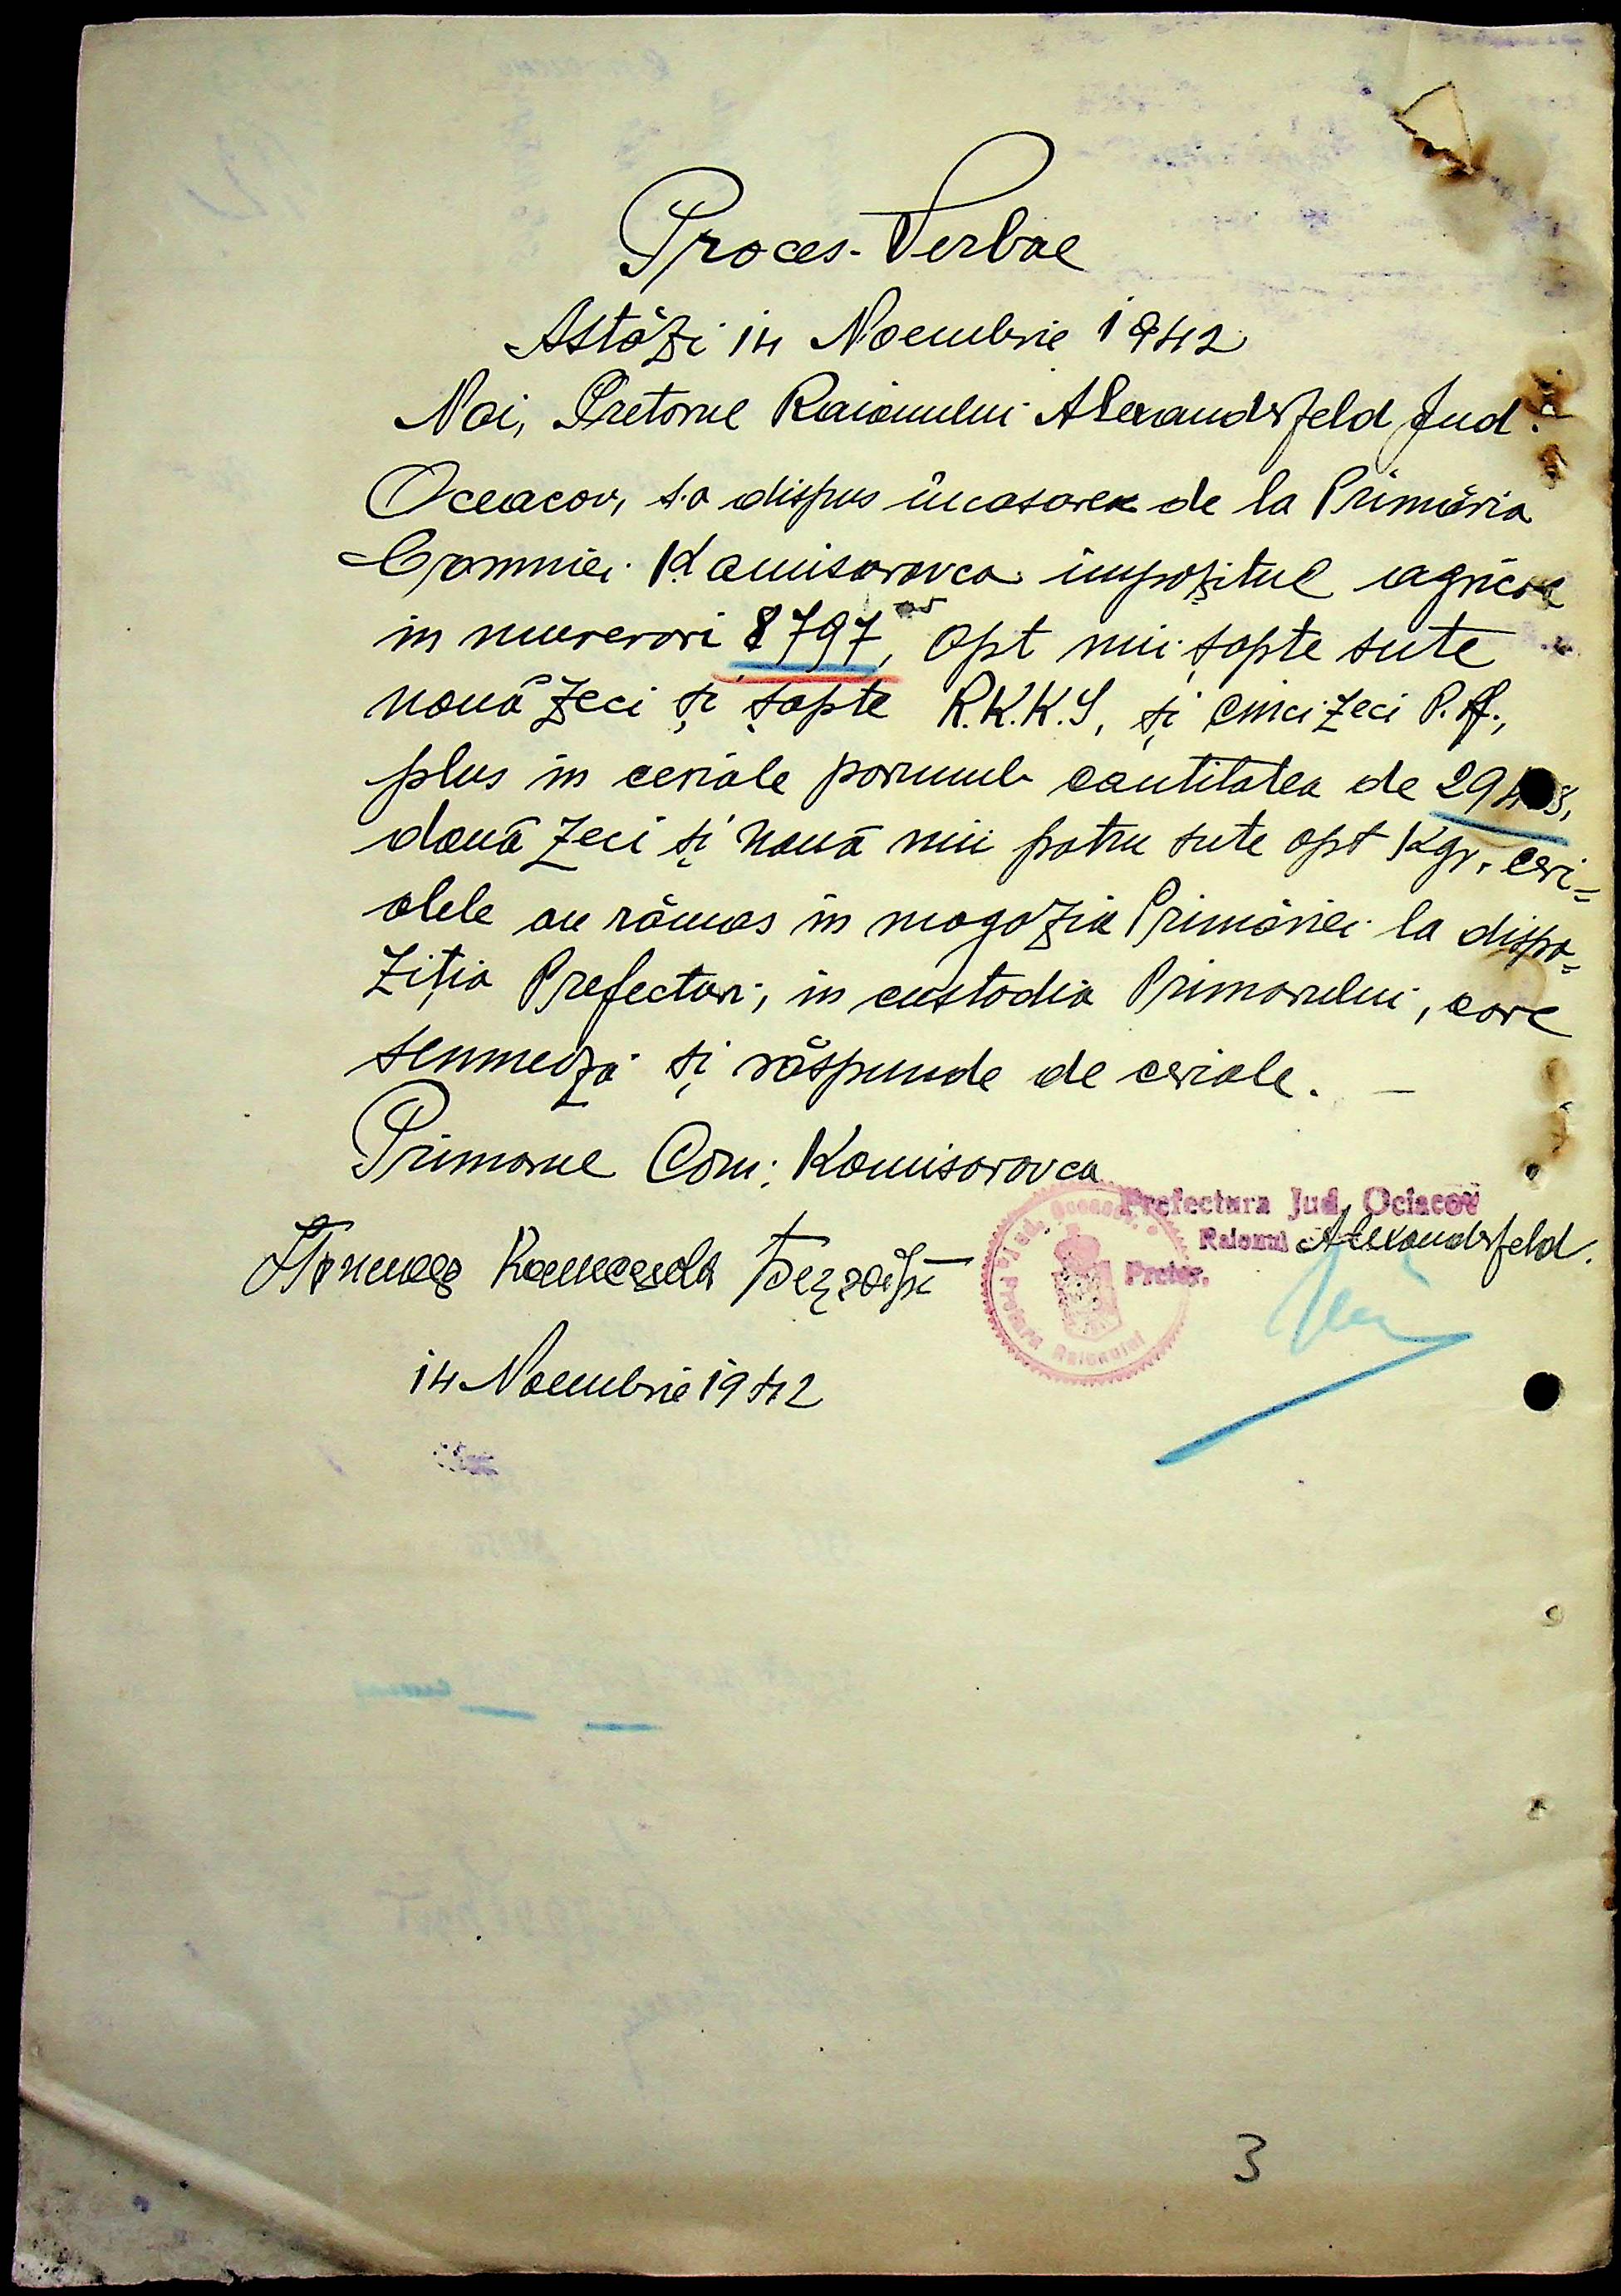 Proces-Verbal
Astăzi 14 Noembrie 1942
Noi, Pretorul Raionului Alexandrfeld Jud.
Oceacov, s.a dispus încasarea de la Primăria
Comniei Kamisarovca impozitul agricol
in numerori 8797, opt mii șapte sute
nouă zeci și șapte R.K.K.S, și cinci zeci P.f.,
plus in ceriale porumb cantitatea de 29408,
două zeci și nouă mii patru sute opt Kgr. ceri=
alele au rămas in magazia Primăriei la dispo=
ziția Prefecturi, in custodia Primarului, care
semnează și răspunde de ceriale. —
Primarul Com: Komisarovca
Prefectura Jud. Ociacov
Raionul Alexandrfeld.
Pretor.
14 Noembrie 1942
3